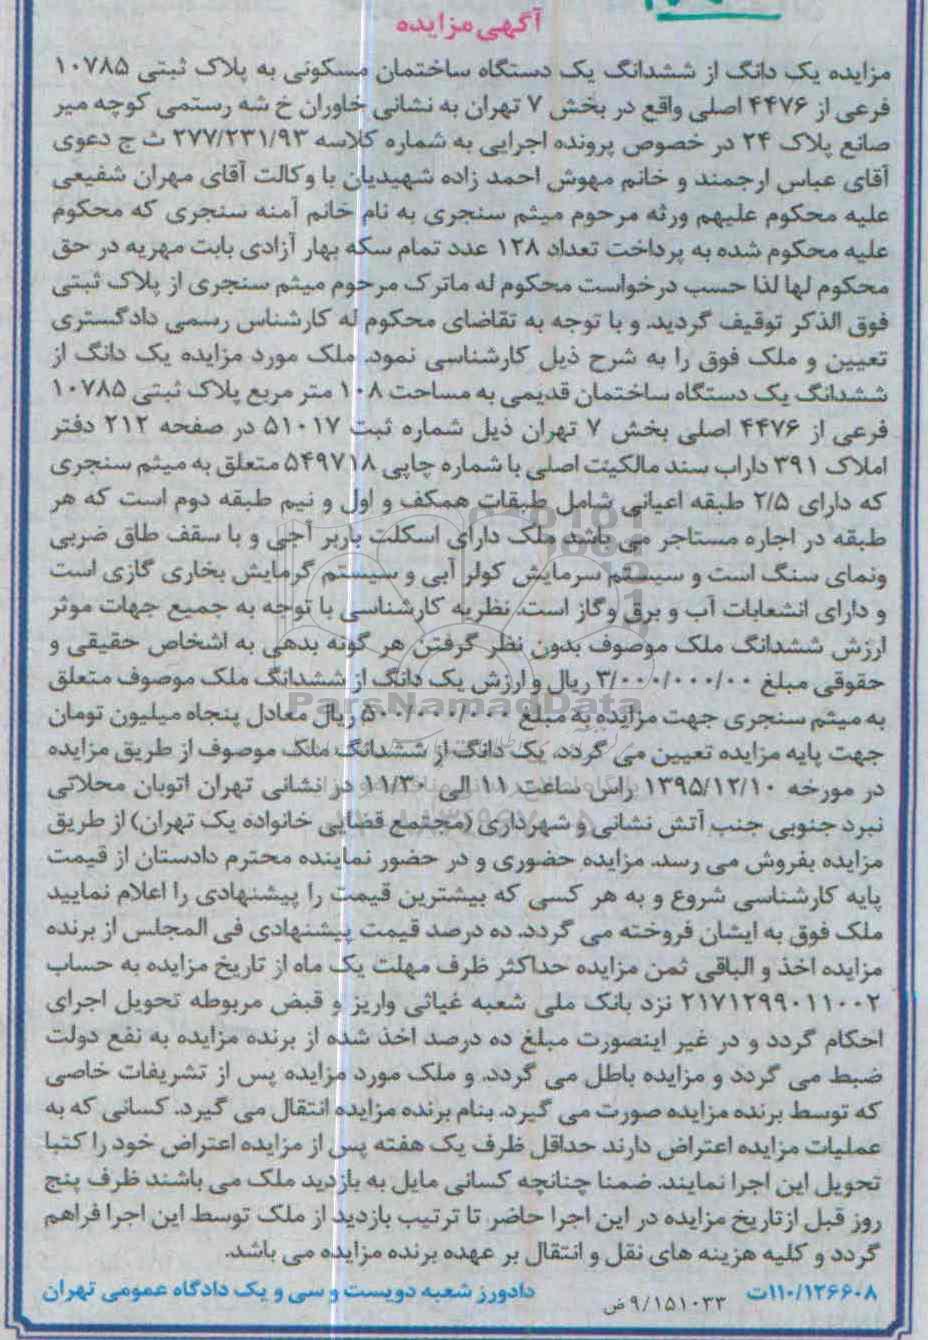 آگهی مزایده
مزایده یک دانگ از ششدانگ یک دستگاه ساختمان مسکونی به پلاک ثبتی ۱۰۷۸۵
فرعی از ۴۴۷۶ اصلی واقع در بخش ۷ تهران به نشانی خاوران خ شه رستمی کوچه میر
صانع پلاک ۲۴ در خصوص پرونده اجرایی به شماره کلاسه ۲۷۷/۲۳۱/۹۳ ث ج دعوی
آقای عباس ارجمند و خانم مهوش احمد زاده شهیدیان با وکالت آقای مهران شفیعی
علیه محکوم علیهم ورثه مرحوم میثم سنجری به نام خانم آمنه سنجری که محکوم
علیه محکوم شده به پرداخت تعداد ۱۲۸ عدد تمام سکه بهار آزادی بابت مهریه در حق
محکوم لها لذا حسب درخواست محکوم له ماترک مرحوم میثم سنجری از پلاک ثبتی
فوق الذکر توقیف گردید. و با توجه به تقاضای محکوم له کارشناس رسمی دادگستری
تعیین و ملک فوق را به شرح ذیل کارشناسی نمود. ملک مورد مزایده یک دانگ از
ششدانگ یک دستگاه ساختمان قدیمی به مساحت ۱۰۸ متر مربع پلاک ثبتی ۱۰۷۸۵
فرعی از ۴۴۷۶ اصلی بخش ۷ تهران ذیل شماره ثبت ۵۱۰۱۷ در صفحه ۲۱۲ دفتر
املاک ۳۹۱ داراب سند مالکیت اصلی با شماره چاپی ۵۴۹۷۱۸ متعلق به میثم سنجری
که دارای ۲/۵ طبقه اعیانی شامل طبقات همکف و اول و نیم طبقه دوم است که هر
طبقه در اجاره مستاجر می باشد ملک دارای اسکلت باربر آجی و با سقف طاق ضربی
ونمای سنگ است و سیستم سرمایش کولر آبی و سیستم گرمایش بخاری گازی است
و دارای انشعابات آب و برق وگاز است. نظریه کارشناسی با توجه به جمیع جهات موثر
ارزش ششدانگ ملک موصوف بدون نظر گرفتن هر گونه بدهی به اشخاص حقیقی و
حقوقی مبلغ ۳/۰۰۰/۰۰۰/۰۰ ریال و ارزش یک دانگ از ششدانگ ملک موصوف متعلق
به میثم سنجری جهت مزایده به مبلغ ۵۰۰/۰۰۰/۰۰۰ ریال معادل پنجاه میلیون تومان
جهت پایه مزایده تعیین می گردد. یک دانگ از ششدانگ ملک موصوف از طریق مزایده
در مورخه ۱۳۹۵/۱۲/۱۰ راس ساعت ۱۱ الی ۱۱/۳۰ در نشانی تهران اتوبان محلاتی
نبرد جنوبی جنب آتش نشانی و شهرداری (مجتمع قضایی خانواده یک تهران) از طریق
مزایده بفروش می رسد. مزایده حضوری و در حضور نماینده محترم دادستان از قیمت
پایه کارشناسی شروع و به هر کسی که بیشترین قیمت را پیشنهادی را اعلام نمایید
ملک فوق به ایشان فروخته می گردد. ده درصد قیمت پیشنهادی فی المجلس از برنده
مزایده اخذ و الباقی ثمن مزایده حداکثر ظرف مهلت یک ماه از تاریخ مزایده به حساب
۲۱۷۱۲۹۹۰۱۱۰۰۲ نزد بانک ملی شعبه غیاثی واریز و قبض مربوطه تحویل اجرای
احکام گردد و در غیر اینصورت مبلغ ده درصد اخذ شده از برنده مزایده به نفع دولت
ضبط می گردد و مزایده باطل می گردد. و ملک مورد مزایده پس از تشریفات خاصی
که توسط برنده مزایده صورت می گیرد. بنام برنده مزایده انتقال می گیرد. کسانی که به
عملیات مزایده اعتراض دارند حداقل ظرف یک هفته پس از مزایده اعتراض خود را کتبا
تحویل این اجرا نمایند. ضمنا چنانچه کسانی مایل به بازدید ملک می باشند ظرف پنج
روز قبل از تاریخ مزایده در این اجرا حاضر تا ترتیب بازدید از ملک توسط این اجرا فراهم
گردد و کلیه هزینه های نقل و انتقال بر عهده برنده مزایده می باشد.
۱۱۰/۱۲۶۶۰۸ت دادورز شعبه دویست و سی و یک دادگاه عمومی تهران
۹/۱۵۱۰۳۳ض
ParsNamadData